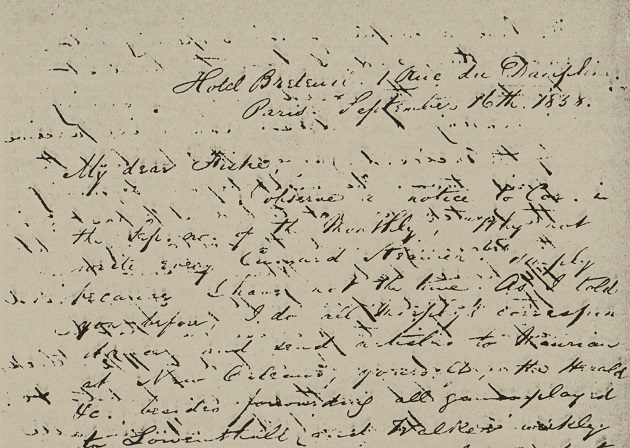 Hotel Breteuil. 1 Rue du Dauphin.
Paris. September 16th. 1858.
My dear Fiske,
I observe a notice to Cor. in
the Sep. no. of the Monthly, "Why not
write every Cunard Steamer" &c. Simply
because I have not the time. As I told
you before, I do all Murphy's correspon
dence, and send articles to Maurian
at New Orleans, generally, in the Herald
&c. besides forwarding all games played
to Löwenthal, and Walker weekly